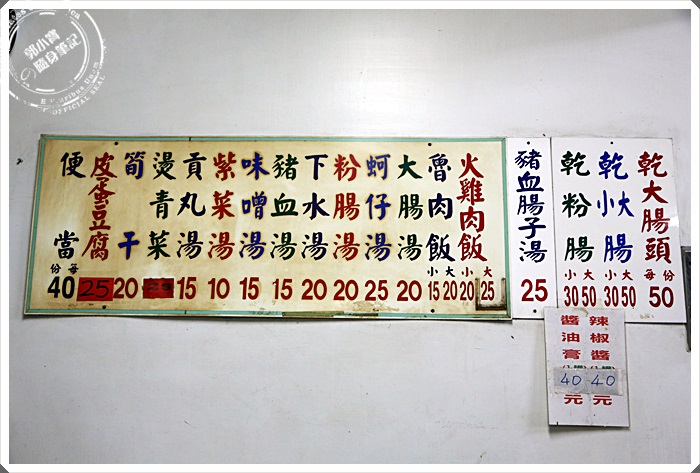 郭小寶の隨身筆記
OFFICIAL SEAL
乾大腸頭 每份 50
乾小大腸 小30 大50
乾粉腸 小30 大50
豬血腸子湯 25
火雞肉飯 小20 大25
魯肉飯 小15 大20
大腸湯 20
蚵仔湯 25
粉腸湯 20
下水湯 20
豬血湯 15
味噌湯 15
紫菜湯 10
貢丸湯 15
燙青菜
筍干 20
皮蛋豆腐 25
便當 每份 40
辣椒醬 40元
醬油膏 40元